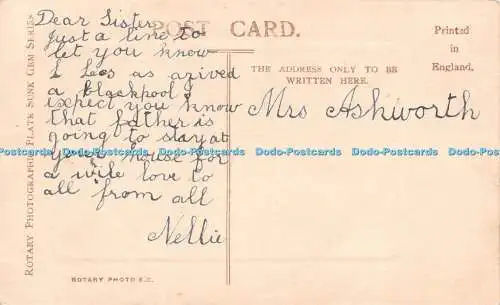 ROTARY PHOTOGRAPHIC PLATE SUNK GEM SERIES
POST CARD.
Printed
in
England.
THE ADDRESS ONLY TO BE
WRITTEN HERE.
Dear Sister
Just a line to
let you know
I Lees as arived
a Blackpool
expect you know
that father is
going to stay at
your house for
a wile love to
all from all
Nellie
Mrs Ashworth
Dodo-Postcards Dodo-Postcards Dodo-Postcards Dodo-Postcards Dodo-Postcards
ROTARY PHOTO E.C.